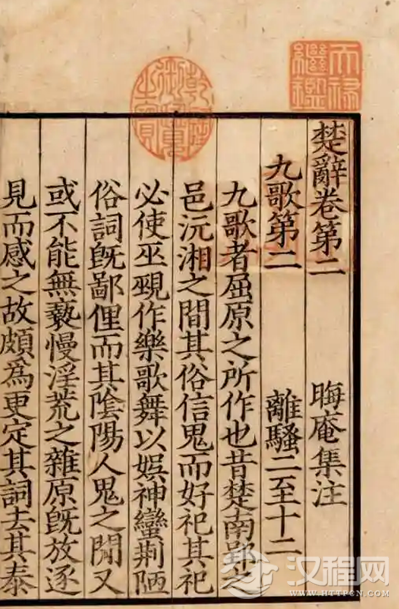 楚辭卷第二　晦庵集注
九歌第二　離騷二至十二
九歌者屈原之所作也昔楚南郢之
邑沅湘之間其俗信鬼而好祀其祀
必使巫覡作樂歌舞以娛神蠻荆陋
俗詞旣鄙俚而其陰陽人鬼之間又
或不能無褻慢淫荒之雜原旣放逐
見而感之故頗為更定其詞去其泰
天祿繼鑑
乾隆御覽之寶
汉程网
HTTPCN.COM